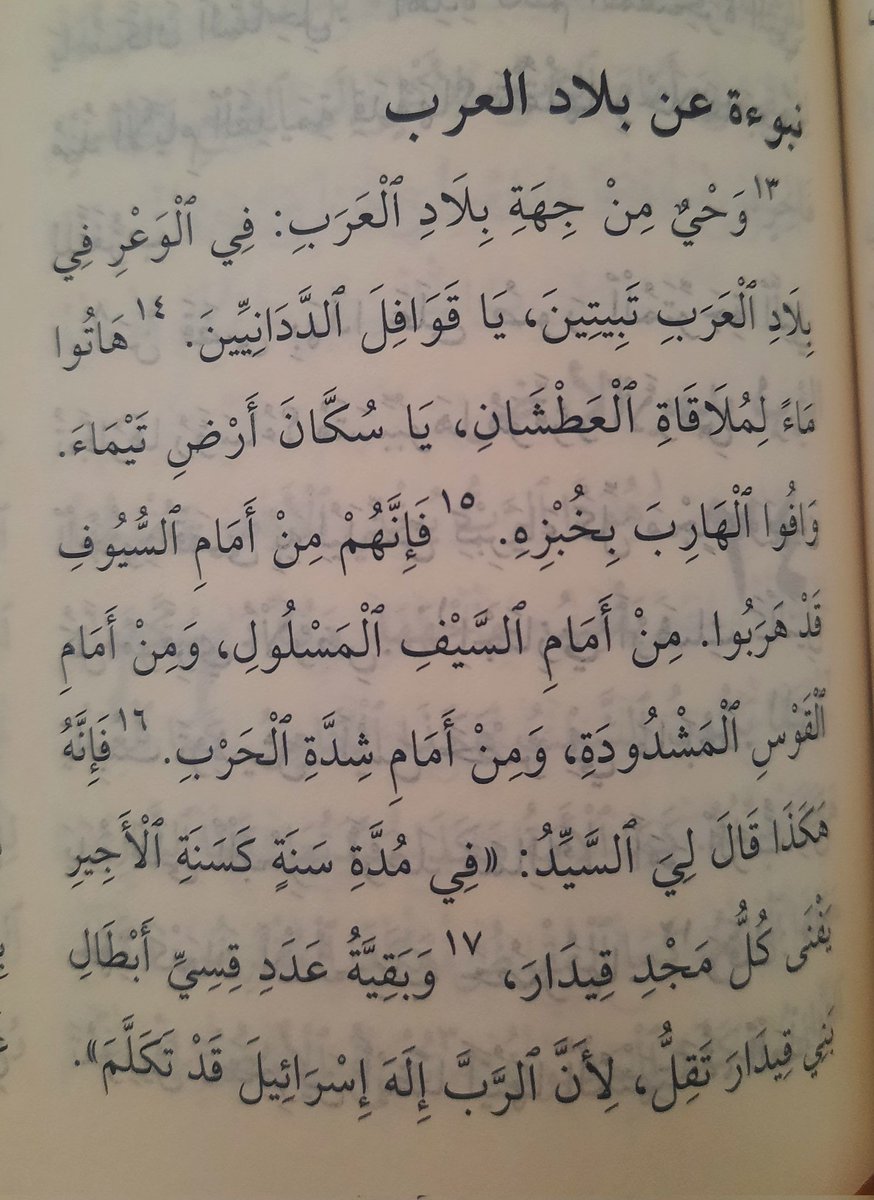 نبوءة عن بلاد العرب
١٣ وَحْيٌ مِنْ جِهَةِ بِلَادِ ٱلْعَرَبِ: فِي ٱلْوَعْرِ فِي
بِلَادِ ٱلْعَرَبِ تَبِيتِينَ، يَا قَوَافِلَ ٱلدَّدَانِيِّينَ. ١٤ هَاتُوا
مَاءً لِمُلَاقَاةِ ٱلْعَطْشَانِ، يَا سُكَّانَ أَرْضِ تَيْمَاءَ.
وَافُوا ٱلْهَارِبَ بِخُبْزِهِ. ١٥ فَإِنَّهُمْ مِنْ أَمَامِ ٱلسُّيُوفِ
قَدْ هَرَبُوا. مِنْ أَمَامِ ٱلسَّيْفِ ٱلْمَسْلُولِ، وَمِنْ أَمَامِ
ٱلْقَوْسِ ٱلْمَشْدُودَةِ، وَمِنْ أَمَامِ شِدَّةِ ٱلْحَرْبِ. ١٦ فَإِنَّهُ
هَكَذَا قَالَ لِيَ ٱلسَّيِّدُ: «فِي مُدَّةِ سَنَةٍ كَسَنَةِ ٱلْأَجِيرِ
يَفْنَى كُلُّ مَجْدِ قِيدَارَ، ١٧ وَبَقِيَّةُ عَدَدِ قِسِيِّ أَبْطَالِ
بَنِي قِيدَارَ تَقِلُّ، لِأَنَّ ٱلرَّبَّ إِلَهَ إِسْرَائِيلَ قَدْ تَكَلَّمَ».